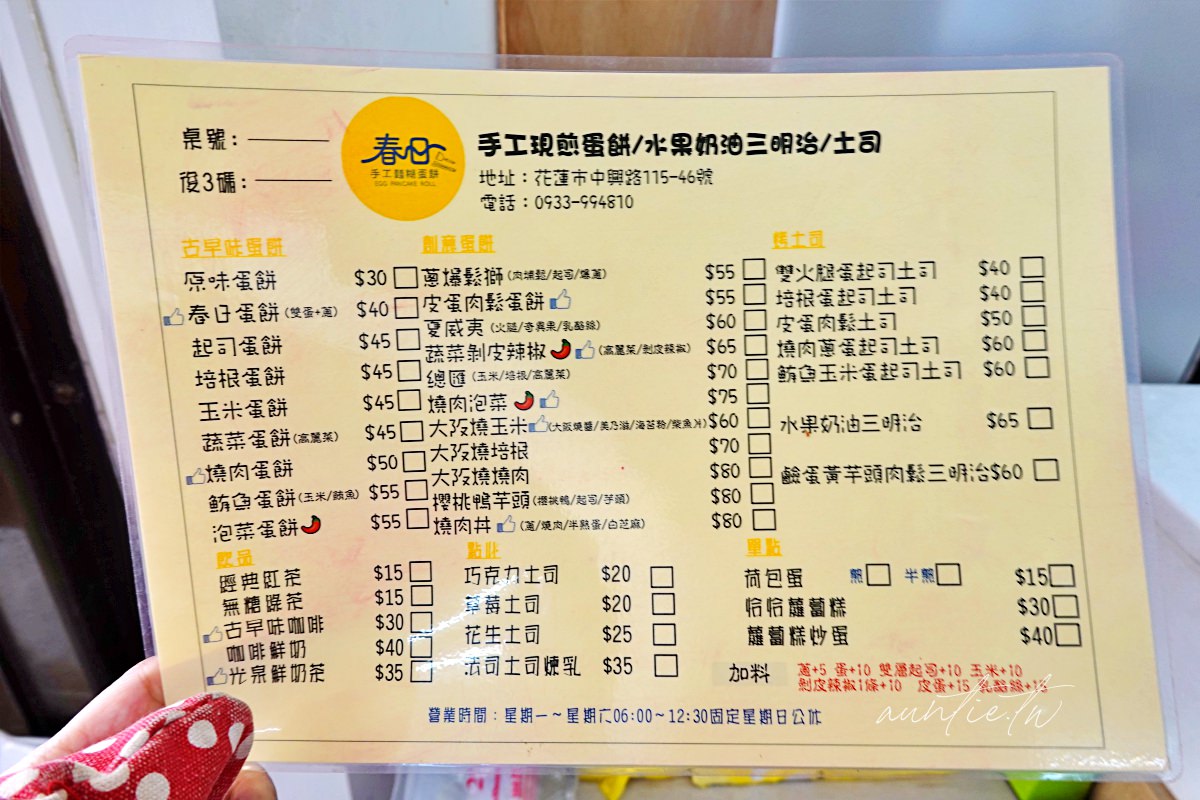 桌號：
後3碼：
春日
手工麵糊蛋餅
EGG PANCAKE ROLL
手工現煎蛋餅/水果奶油三明治/土司
地址：花蓮市中興路115-46號
電話：0933-994810
古早味蛋餅
原味蛋餅 $30
春日蛋餅(雙蛋+蔥) $40
起司蛋餅 $45
培根蛋餅 $45
玉米蛋餅 $45
蔬菜蛋餅(高麗菜) $45
燒肉蛋餅 $50
鮪魚蛋餅(玉米/鮪魚) $55
泡菜蛋餅 $55
創意蛋餅
蔥爆鬆獅(肉鬆/起司/爆蔥) $55
皮蛋肉鬆蛋餅 $55
夏威夷(火腿/奇異果/乳酪絲) $60
蔬菜剝皮辣椒(高麗菜/剝皮辣椒) $65
總匯(玉米/培根/高麗菜) $70
燒肉泡菜 $75
大阪燒玉米(大阪燒醬/美乃滋/海苔粉/柴魚片) $60
大阪燒培根 $70
大阪燒燒肉 $80
櫻桃鴨芋頭(櫻桃鴨/起司/芋頭) $80
燒肉丼(蔥/燒肉/半熟蛋/白芝麻) $80
烤土司
雙火腿蛋起司土司 $40
培根蛋起司土司 $40
皮蛋肉鬆土司 $50
燒肉蔥蛋起司土司 $60
鮪魚玉米蛋起司土司 $60
水果奶油三明治 $65
鹹蛋黃芋頭肉鬆三明治$60
飲品
經典紅茶 $15
無糖綠茶 $15
古早味咖啡 $30
咖啡鮮奶 $40
光泉鮮奶茶 $35
點心
巧克力土司 $20
草莓土司 $20
花生土司 $25
法司土司煉乳 $35
單點
荷包蛋 熟 半熟 $15
恰恰蘿蔔糕 $30
蘿蔔糕炒蛋 $40
加料
蔥+5 蛋+10 雙層起司+10 玉米+10
剝皮辣椒1條+10 皮蛋+15 乳酪絲+15
營業時間：星期一～星期六06:00～12:30固定星期日公休
auntie.tw